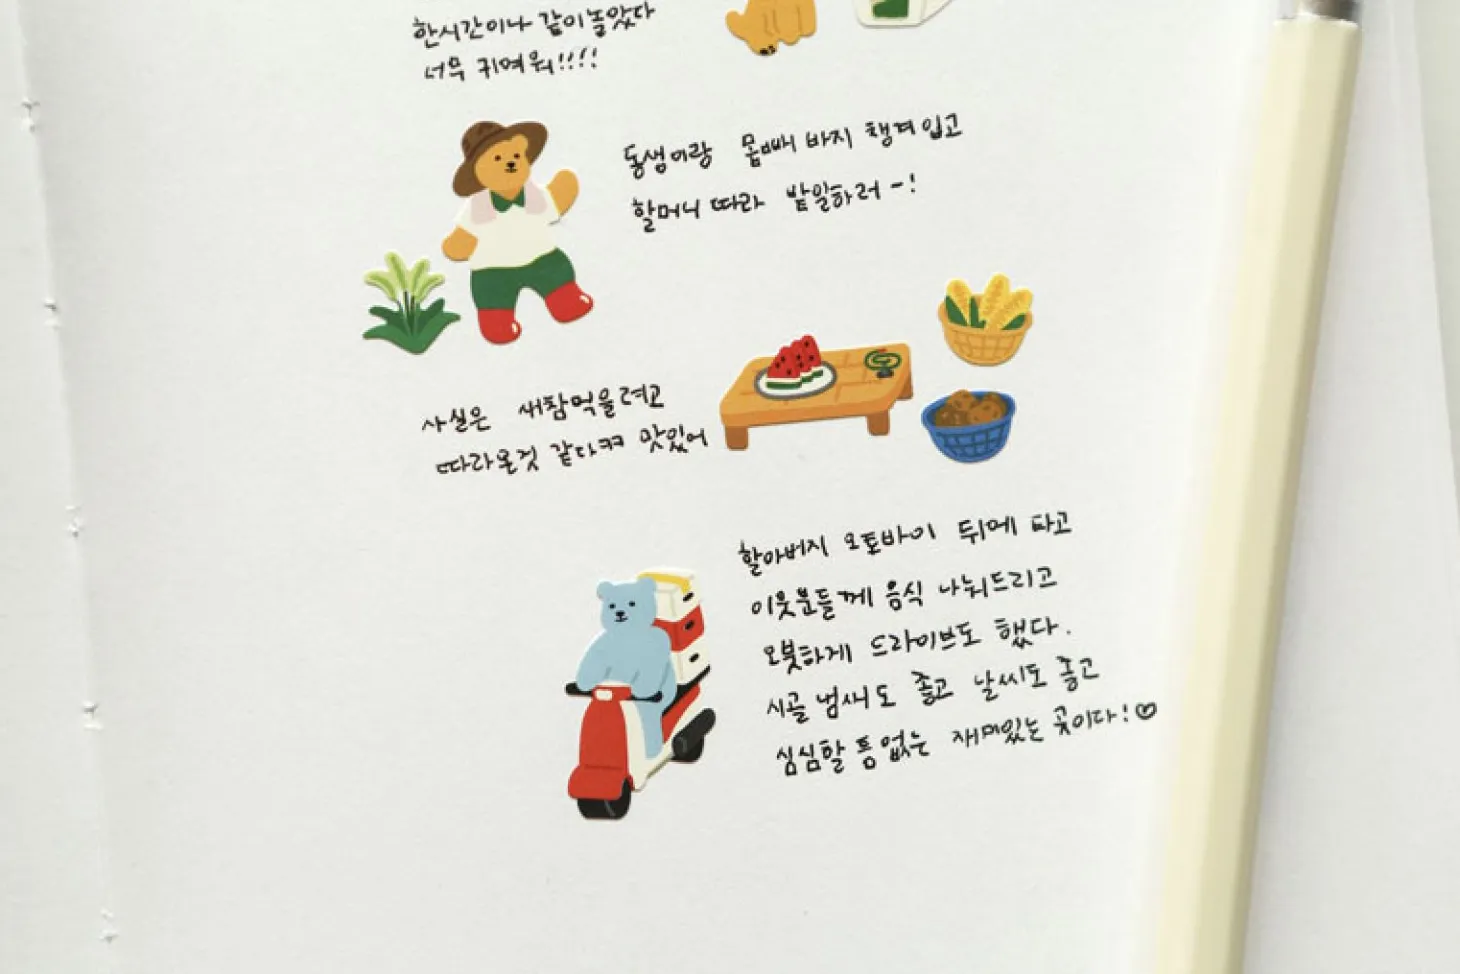 한시간이나 같이놀았다
너무 귀여워!!!!
동생이랑 몸빼 바지 챙겨입고
할머니 따라 밭일하러 ~!
사실은 새참먹을려고
따라온것 같다ㅋㅋ 맛있어
할아버지 오토바이 뒤에 타고
이웃분들께 음식 나눠드리고
오붓하게 드라이브도 했다.
시골 냄새도 좋고 날씨도 좋고
심심할 틈 없는 재미있는 곳이다!♡